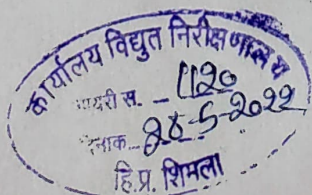 कार्यालय विद्युत निरीक्षणालय
डायरी स. - 1120
दिनांक - 28-5-2022
हि.प्र. शिमला